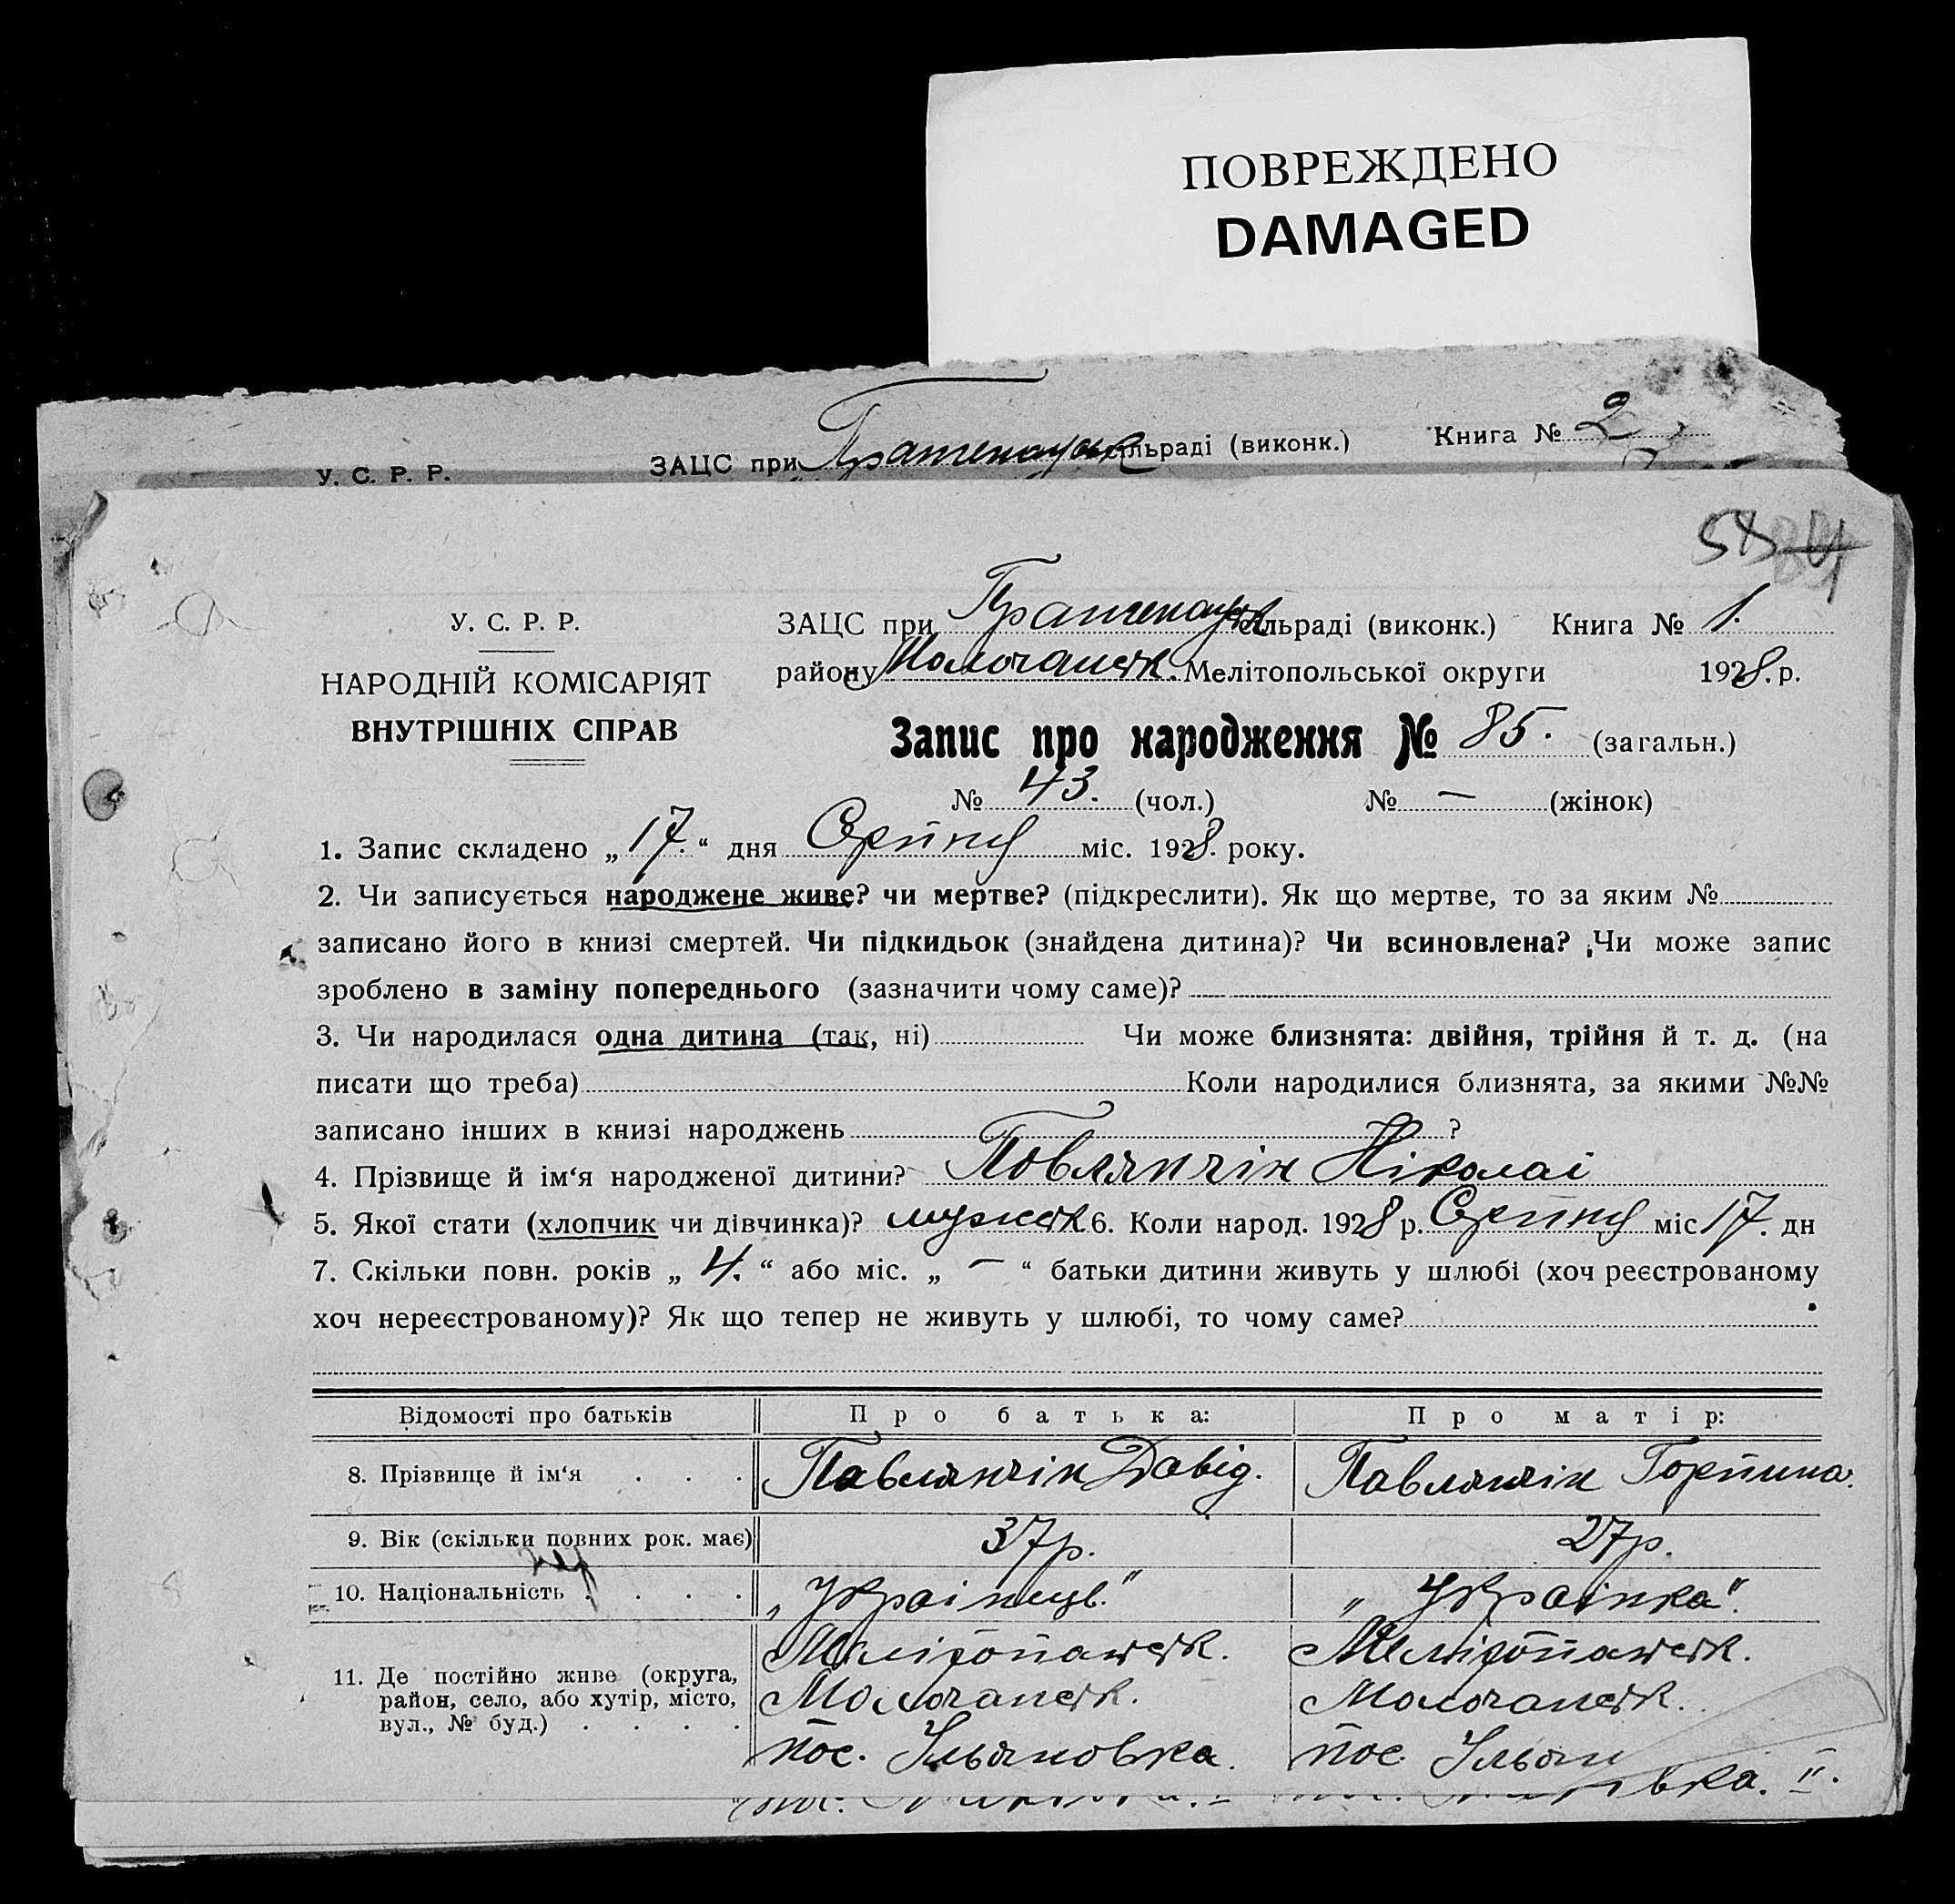 ПОВРЕЖДЕНО
DAMAGED
У. С. Р. Р. ЗАЦС при сільраді (виконк.) Книга № 2
58
У. С. Р. Р.
НАРОДНІЙ КОМІСАРІЯТ
ВНУТРІШНІХ СПРАВ
ЗАЦС при сільраді (виконк.) Книга № 1.
району Молочанськ. Мелітопольської округи 1928. р.
Запис про народження № 85. (загальн.)
№ 43. (чол.) № — (жінок)
1. Запис складено „17.“ дня Серпня міс. 1928. року.
2. Чи записується народжене живе? чи мертве? (підкреслити). Як що мертве, то за яким №
записано його в книзі смертей. Чи підкидьок (знайдена дитина)? Чи всиновлена? Чи може запис
зроблено в заміну попереднього (зазначити чому саме)?
3. Чи народилася одна дитина (так, ні) Чи може близнята: двійня, трійня й т. д. (на
писати що треба) Коли народилися близнята, за якими №№
записано інших в книзі народжень ?
4. Прізвище й ім‘я народженої дитини? Павлянчік Ніколаі
5. Якої стати (хлопчик чи дівчинка)? мужськ 6. Коли народ. 1928 р. Серпня міс 17. дн
7. Скільки повн. років „ 4. “ або міс. „ — “ батьки дитини живуть у шлюбі (хоч реєстрованому
хоч нереєстрованому)? Як що тепер не живуть у шлюбі, то чому саме?
Відомості про батьків Про батька: Про матір:
8. Прізвище й ім‘я . . . Павлянчік Давід. Павлянчік Горпина.
9. Вік (скільки повних рок. має) 37р. 27р.
10. Національність . . . . „Українець.“ „Українка“.
11. Де постійно живе (округа,
район, село, або хутір, місто,
вул., № буд.) . . . .
Мелітопольськ.
Молочанськ.
пос. Ульяновка.
Мелітопольськ.
Молочанськ.
пос. Ульян
вка. II.